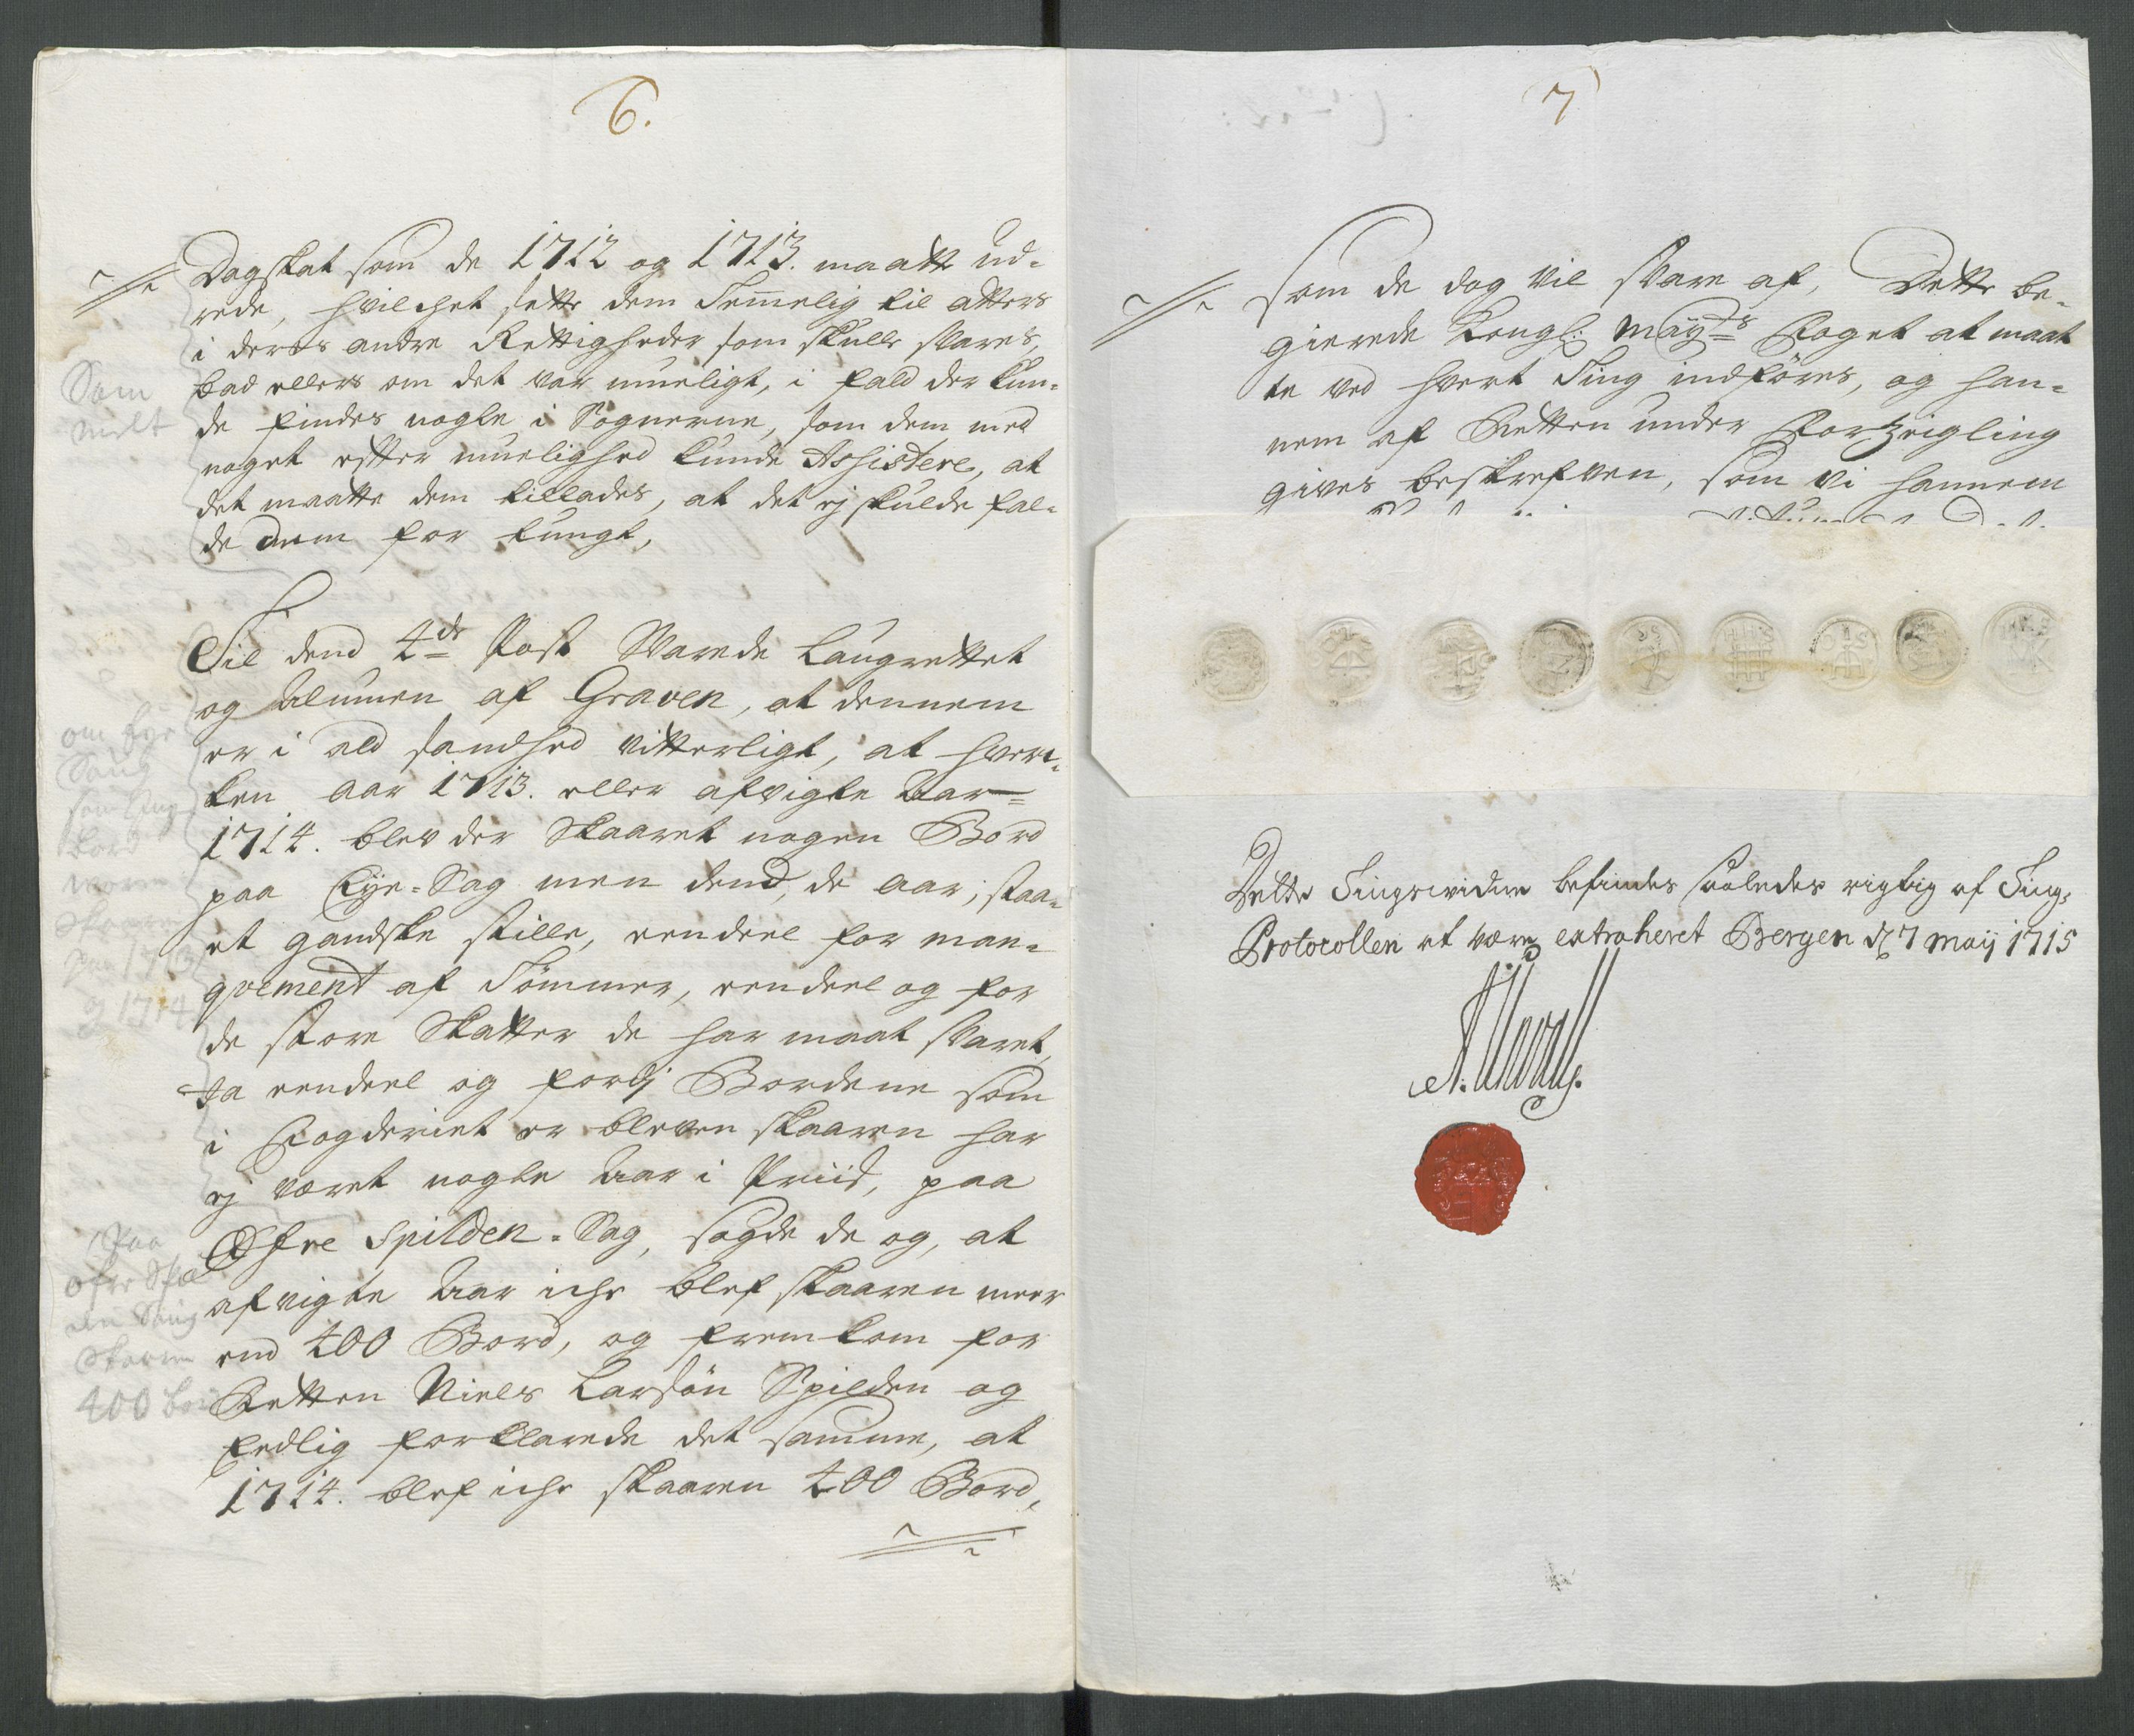 6.
Dagskat som de 1712 og 1713. maatte ud-
rede, hvilchet sette dem Temmelig til atters
i deres andre Rettigheder som skulle svares,
bad ellers om det var mueligt, i fald der kun-
de findes nogle i Sognerne, som dem med
noget efter muelighed kunde Assistere, at
det maatte dem tillades, at det ej skulde fal-
de dem for tungt,
Til dend 4de Post Svarede Laugrettet
og Almuen af Graven, at dennem
er i ald sandhed vitterligt, at hver-
ken aar 1713. eller afvigte Aar
1714. blev der Skaaret nogen Bord
paa Eye-Sag men dend, de aar, staa-
et gandske stille, eendeel for man-
qvement af Tømmer, eendeel og for
de store Skatter de har maat svaret,
Ja eendeel og fordj Bordene som
i Fogderiet er bleven skaaren har
ej været nogle Aar i Priis, paa
Øfre Spilden-Sag, sagde de og, at
afvigte Aar iche blef skaaren meer
end 400 Bord, og fremkom for
Retten Niels Larsøn Spilden og
Eedlig forklarede det samme, at
1714. blef iche skaaren 400 Bord,
om Eye
Saug
paa 1713
og 1714
Paa
øfre
Saug
Skaaren
400
7
som de dog vil svare af, Dette be-
gierede Kongl: Mayts Foget at maat
te ved hvert Ting indføres, og han-
nem af Retten under Forzeigling
gives beskrefven, som vi hannem
Dette Tingsvidne befindes saaledes rigtig af Ting-
Protocollen at være extraheret Bergen d 7 Maij 1715